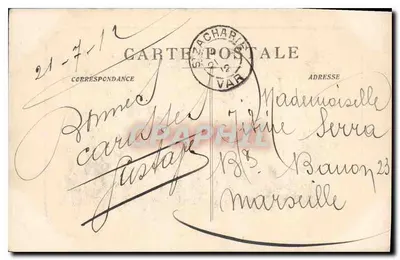 21-7-12
CARTE POSTALE
ST ZACHARIE
VAR
CORRESPONDANCE
ADRESSE
Bonnes
caresses
Gustave
Mademoiselle
Serra
Bd Banon 23
Marseille